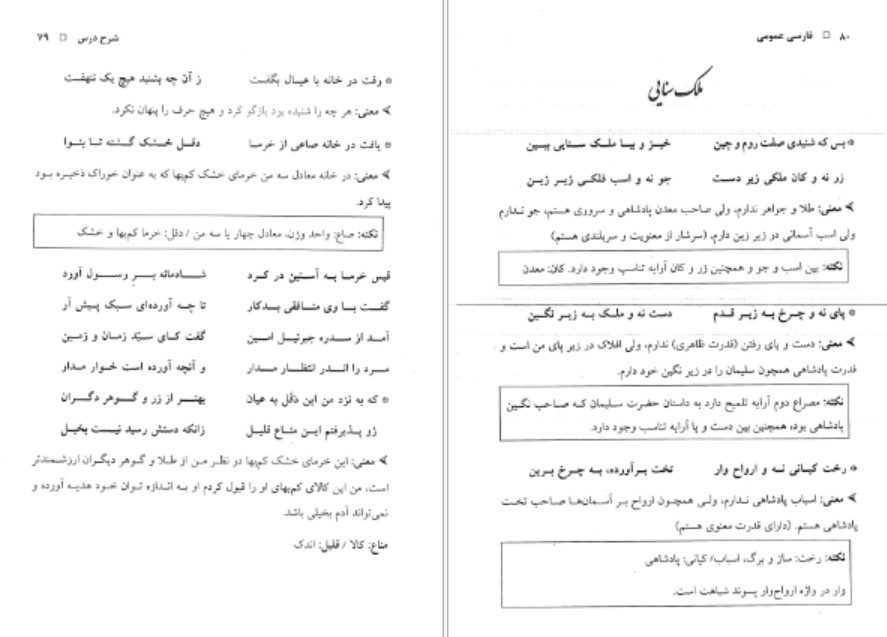 ۸۰ □ فارسی عمومی
ملک سنایی
* بس که شنیدی صفت روم و چین خیز و بیا ملک سنایی ببین
زر نه و کان ملکی زیر دست جو نه و اسب فلکی زیر زین
معنی: طلا و جواهر ندارم، ولی صاحب معدن پادشاهی و سروری هستم، جو ندارم
ولی اسب آسمانی در زیر زین دارم. (سرشار از معنویت و سربلندی هستم)
نکته: بین اسب و جو و همچنین زر و کان آرایه تناسب وجود دارد. کان: معدن
* پای نه و چرخ به زیر قدم دست نه و ملک به زیر نگین
معنی: دست و پای رفتن (قدرت ظاهری) ندارم، ولی افلاک در زیر پای من است و
قدرت پادشاهی همچون سلیمان را در زیر نگین خود دارم.
نکته: مصراع دوم آرایه تلمیح دارد به داستان حضرت سلیمان که صاحب نگین
پادشاهی بود، همچنین بین دست و پا آرایه تناسب وجود دارد.
* رخت کیانی نه و ارواح وار تخت برآورده، به چرخ برین
معنی: اسباب پادشاهی ندارم، ولی همچون ارواح بر آسمان‌ها صاحب تخت
پادشاهی هستم. (دارای قدرت معنوی هستم)
نکته: رخت: ساز و برگ، اسباب/ کیانی: پادشاهی
وار در واژه ارواح‌وار پسوند شباهت است.
شرح درس □ ۷۹
* رفت در خانه با عیال بگفت ز آن چه بشنید هیچ یک ننهفت
معنی: هر چه را شنیده بود بازگو کرد و هیچ حرف را پنهان نکرد.
* یافت در خانه صاعی از خرما دقل خشک گشته تا بنوا
معنی: در خانه معادل سه من خرمای خشک کم‌بها که به عنوان خوراک ذخیره بود
پیدا کرد.
نکته: صاع: واحد وزن، معادل چهار یا سه من / دقل: خرما کم‌بها و خشک
قیس خرما به آستین در کرد شادمانه بر رسول آورد
گفت با وی منافقی بدکار تا چه آورده‌ای سبک پیش آر
آمد از سدره جبرئیل امین گفت کای سیّد زمان و زمین
مرد را اندر انتظار مدار و آنچه آورده است خوار مدار
* که به نزد من این دَقَل به عیان بهتر از زر و گوهر دگران
زو پذیرفتم این متاع قلیل زانکه دستش رسید نیست بخیل
معنی: این خرمای خشک کم‌بها در نظر من از طلا و گوهر دیگران ارزشمندتر
است، من این کالای کم‌بهای او را قبول کردم او به اندازه توان خود هدیه آورده و
نمی‌تواند آدم بخیلی باشد.
متاع: کالا / قلیل: اندک